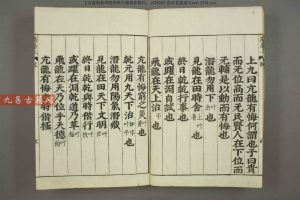 上九曰亢龍有悔何謂也子曰貴
而无位高而无民賢人在下位而
无輔是以動而有悔也
潛龍勿用下也
見龍在田時舍也
終日乾乾行事也
或躍在淵自試也
飛龍在天上治也
亢龍有悔窮之災也
乾元用九天下治也
潛龍勿用陽氣潛藏
見龍在田天下文明
終日乾乾與時偕行
或躍在淵乾道乃革
飛龍在天乃位乎天德
亢龍有悔與時偕極
九易古籍